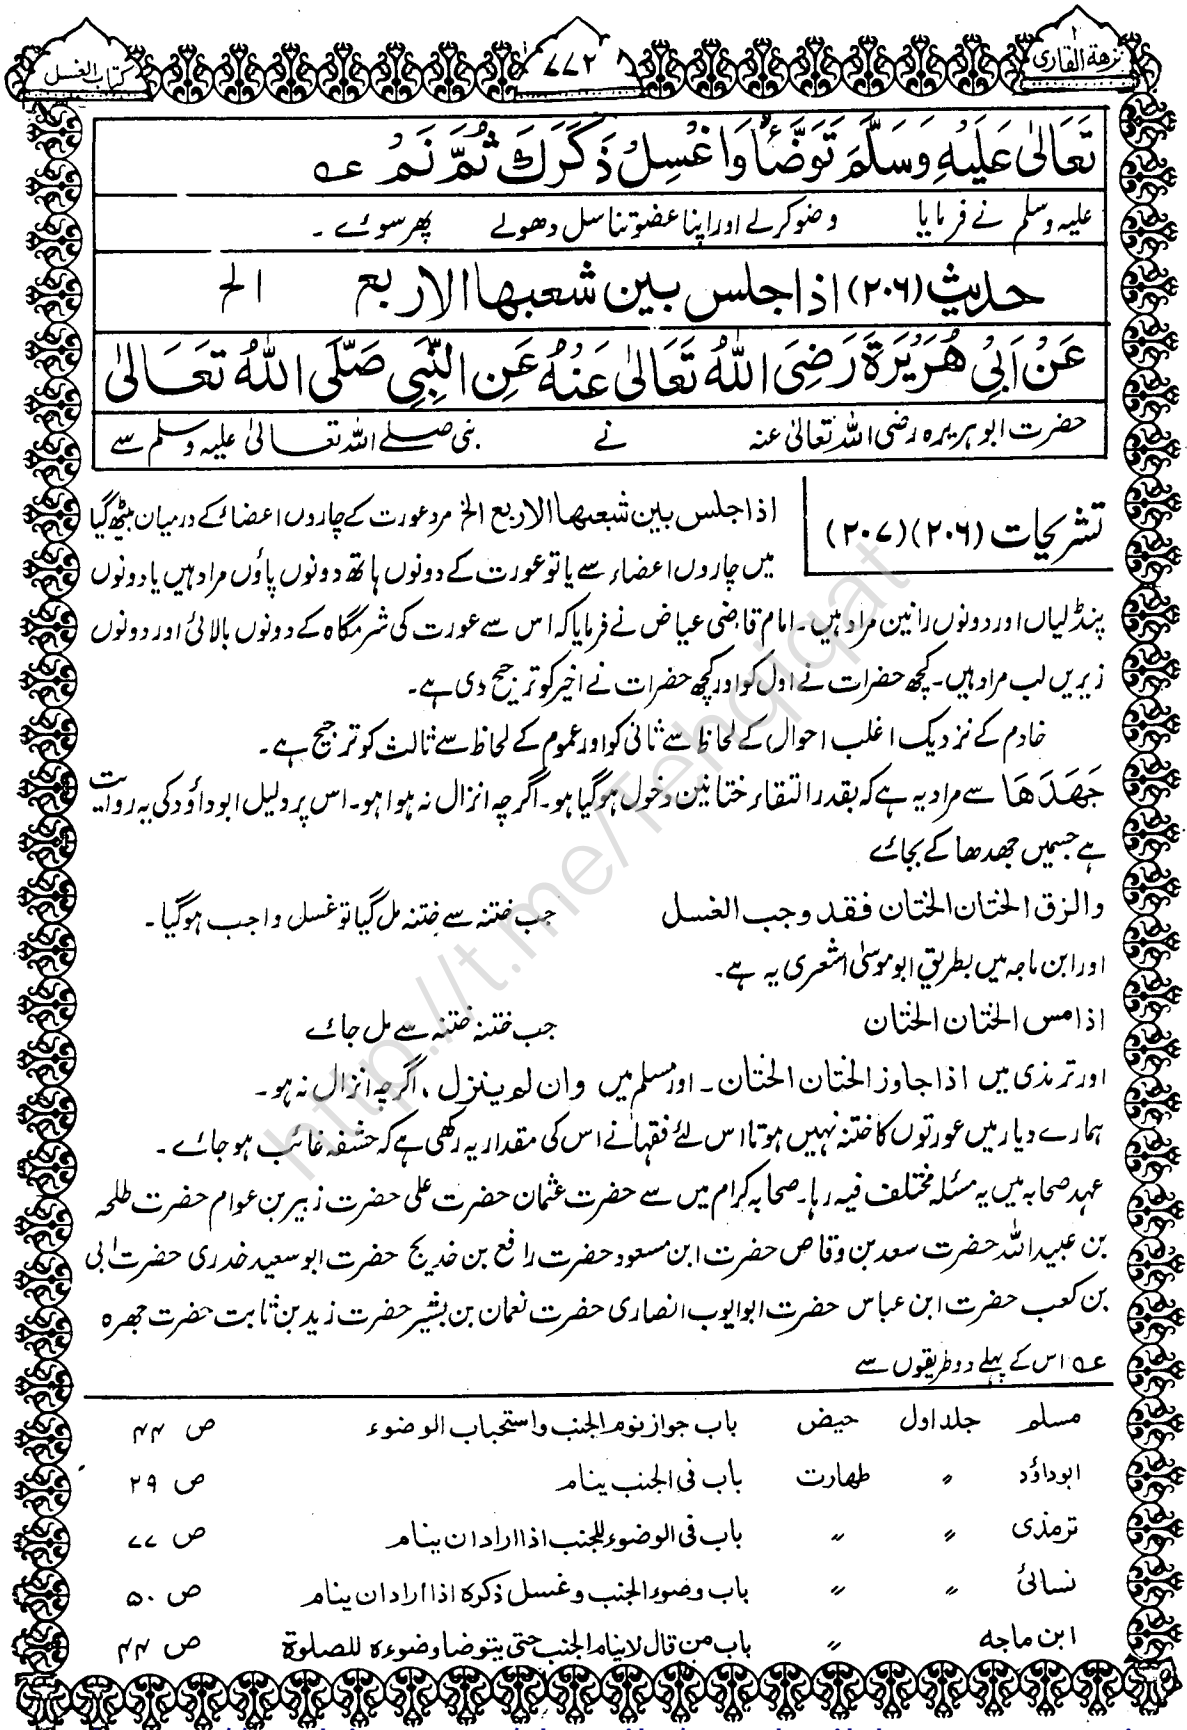 نزهة القاری ۱
۷۷۲
کتاب الغسل
تَعَالٰی عَلَیْهِ وَسَلَّمَ تَوَضَّأْ وَاغْسِلْ ذَکَرَكَ ثُمَّ نَمْ عہ
علیہ وسلم نے فرمایا وضو کرلے اور اپنا عضو تناسل دھولے پھر سوئے ۔
حدیث (۲۰۶) اذا جلس بین شعبها الاربع الخ
عَنْ اَبِیْ هُرَیْرَةَ رَضِیَ اللّٰهُ تَعَالٰی عَنْهُ عَنِ النَّبِیِّ صَلَّی اللّٰهُ تَعَالٰی
حضرت ابوہریرہ رضی اللہ تعالیٰ عنہ نے نبی صلے اللہ تعالیٰ علیہ وسلم سے
تشریحات (۲۰۶) (۲۰۷)
اذا جلس بین شعبها الاربع الخ مرد عورت کے چاروں اعضاء کے درمیان بیٹھ گیا
میں چاروں اعضاء سے یا تو عورت کے دونوں ہاتھ دونوں پاؤں مراد ہیں یا دونوں
پنڈلیاں اور دونوں رانیں مراد ہیں۔ امام قاضی عیاض نے فرمایا کہ اس سے عورت کی شرمگاہ کے دونوں بالائی اور دونوں
زیریں لب مراد ہیں۔ کچھ حضرات نے اول کو اور کچھ حضرات نے اخیر کو ترجیح دی ہے۔
خادم کے نزدیک اغلب احوال کے لحاظ سے ثانی کو اور عموم کے لحاظ سے ثالث کو ترجیح ہے ۔
جَهَدَهَا سے مراد یہ ہے کہ بقدر التقاء ختانین دخول ہوگیا ہو۔ اگرچہ انزال نہ ہوا ہو۔ اس پر دلیل ابوداؤد کی یہ روایت
ہے جسمیں جهدها کے بجائے
والزق الختان الختان فقد وجب الغسل جب ختنہ سے ختنہ مل گیا تو غسل واجب ہوگیا ۔
اور ابن ماجہ میں بطریق ابو موسیٰ اشعری یہ ہے۔
اذا مس الختان الختان جب ختنہ ختنہ سے مل جائے
اور ترمذی میں اذا جاوز الختان الختان ۔ اور مسلم میں وان لم ینزل ، اگرچہ انزال نہ ہو ۔
ہمارے دیار میں عورتوں کا ختنہ نہیں ہوتا اس لئے فقہا نے اس کی مقدار یہ رکھی ہے کہ حشفہ غائب ہو جائے ۔
عہد صحابہ میں یہ مسئلہ مختلف فیہ رہا۔ صحابہ کرام میں سے حضرت عثمان حضرت علی حضرت زبیر بن عوام حضرت طلحہ
بن عبید اللہ حضرت سعد بن وقاص حضرت ابن مسعود حضرت رافع بن خدیج حضرت ابو سعید خدری حضرت ابی
بن کعب حضرت ابن عباس حضرت ابو ایوب انصاری حضرت نعمان بن بشیر حضرت زید بن ثابت حضرت جمہرہ
عہ اس کے پہلے دو طریقوں سے
مسلم جلد اول حیض باب جواز نوم الجنب واستحباب الوضوء ص ۴۴
ابوداؤد 〃 طهارت باب فی الجنب ینام ص ۲۹
ترمذی 〃 〃 باب فی الوضوء للجنب اذا اراد ان ینام ص ۷۷
نسائی 〃 〃 باب وضوء الجنب وغسل ذکره اذا اراد ان ینام ص ۵۰
ابن ماجه 〃 باب من قال لا ینام الجنب حتی یتوضا وضوءه للصلوة ص ۴۴
http://t.me/Tehqiqat